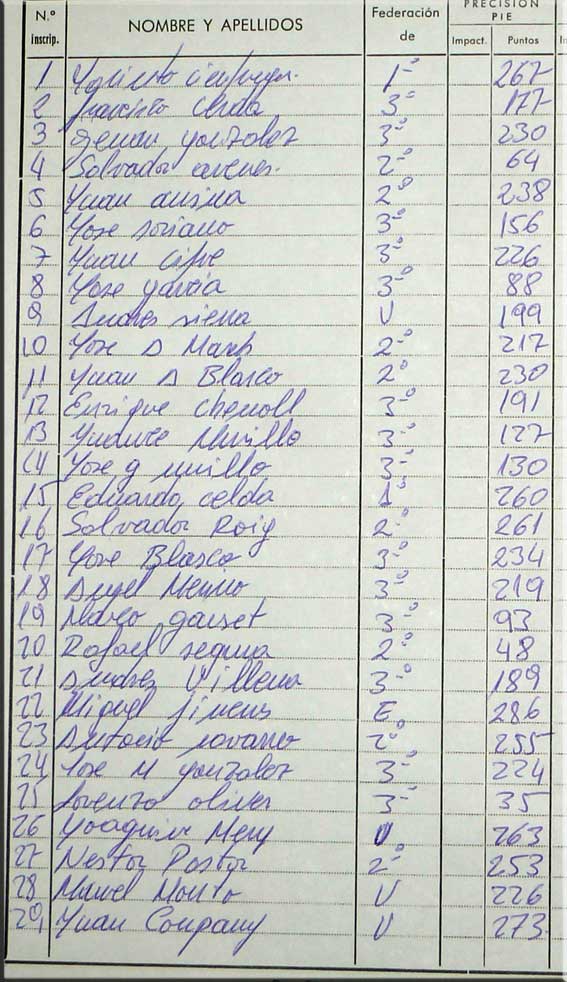 N.º inscrip. NOMBRE Y APELLIDOS Federación de PRECISION PIE Impact. Puntos
1 1-º 267
2 Francisco Cerda 3-º 177
3 gonzalez 3-º 230
4 Salvador 2-º 64
5 Yuan ansina 2º 238
6 Yose soriano 3-º 156
7 Yuan Cifre 3-º 226
8 Yose garcia 3-º 88
9 Andres sierra V 199
10 Yose A March 2-º 217
11 Yuan A Blasco 2º 230
12 Enrique Chenoll 3-º 191
13 Murillo 3-º 127
14 Yose g murillo 3-º 130
15 Eduardo celda 1º 260
16 Salvador Roig 2-º 261
17 Yose Blasco 3-º 234
18 Angel Merino 3-º 219
19 3-º 93
20 Rafael segura 2-º 48
21 Andres Villena 3-º 189
22 Miguel E 286
23 Antonio 2º 255
24 Yose M gonzalez 3-º 224
25 Lorenzo oliver 3-º 35
26 Yoaquin Mery V 263
27 Nestor Pastor 2-º 253
28 V 226
29 Yuan Company V 273